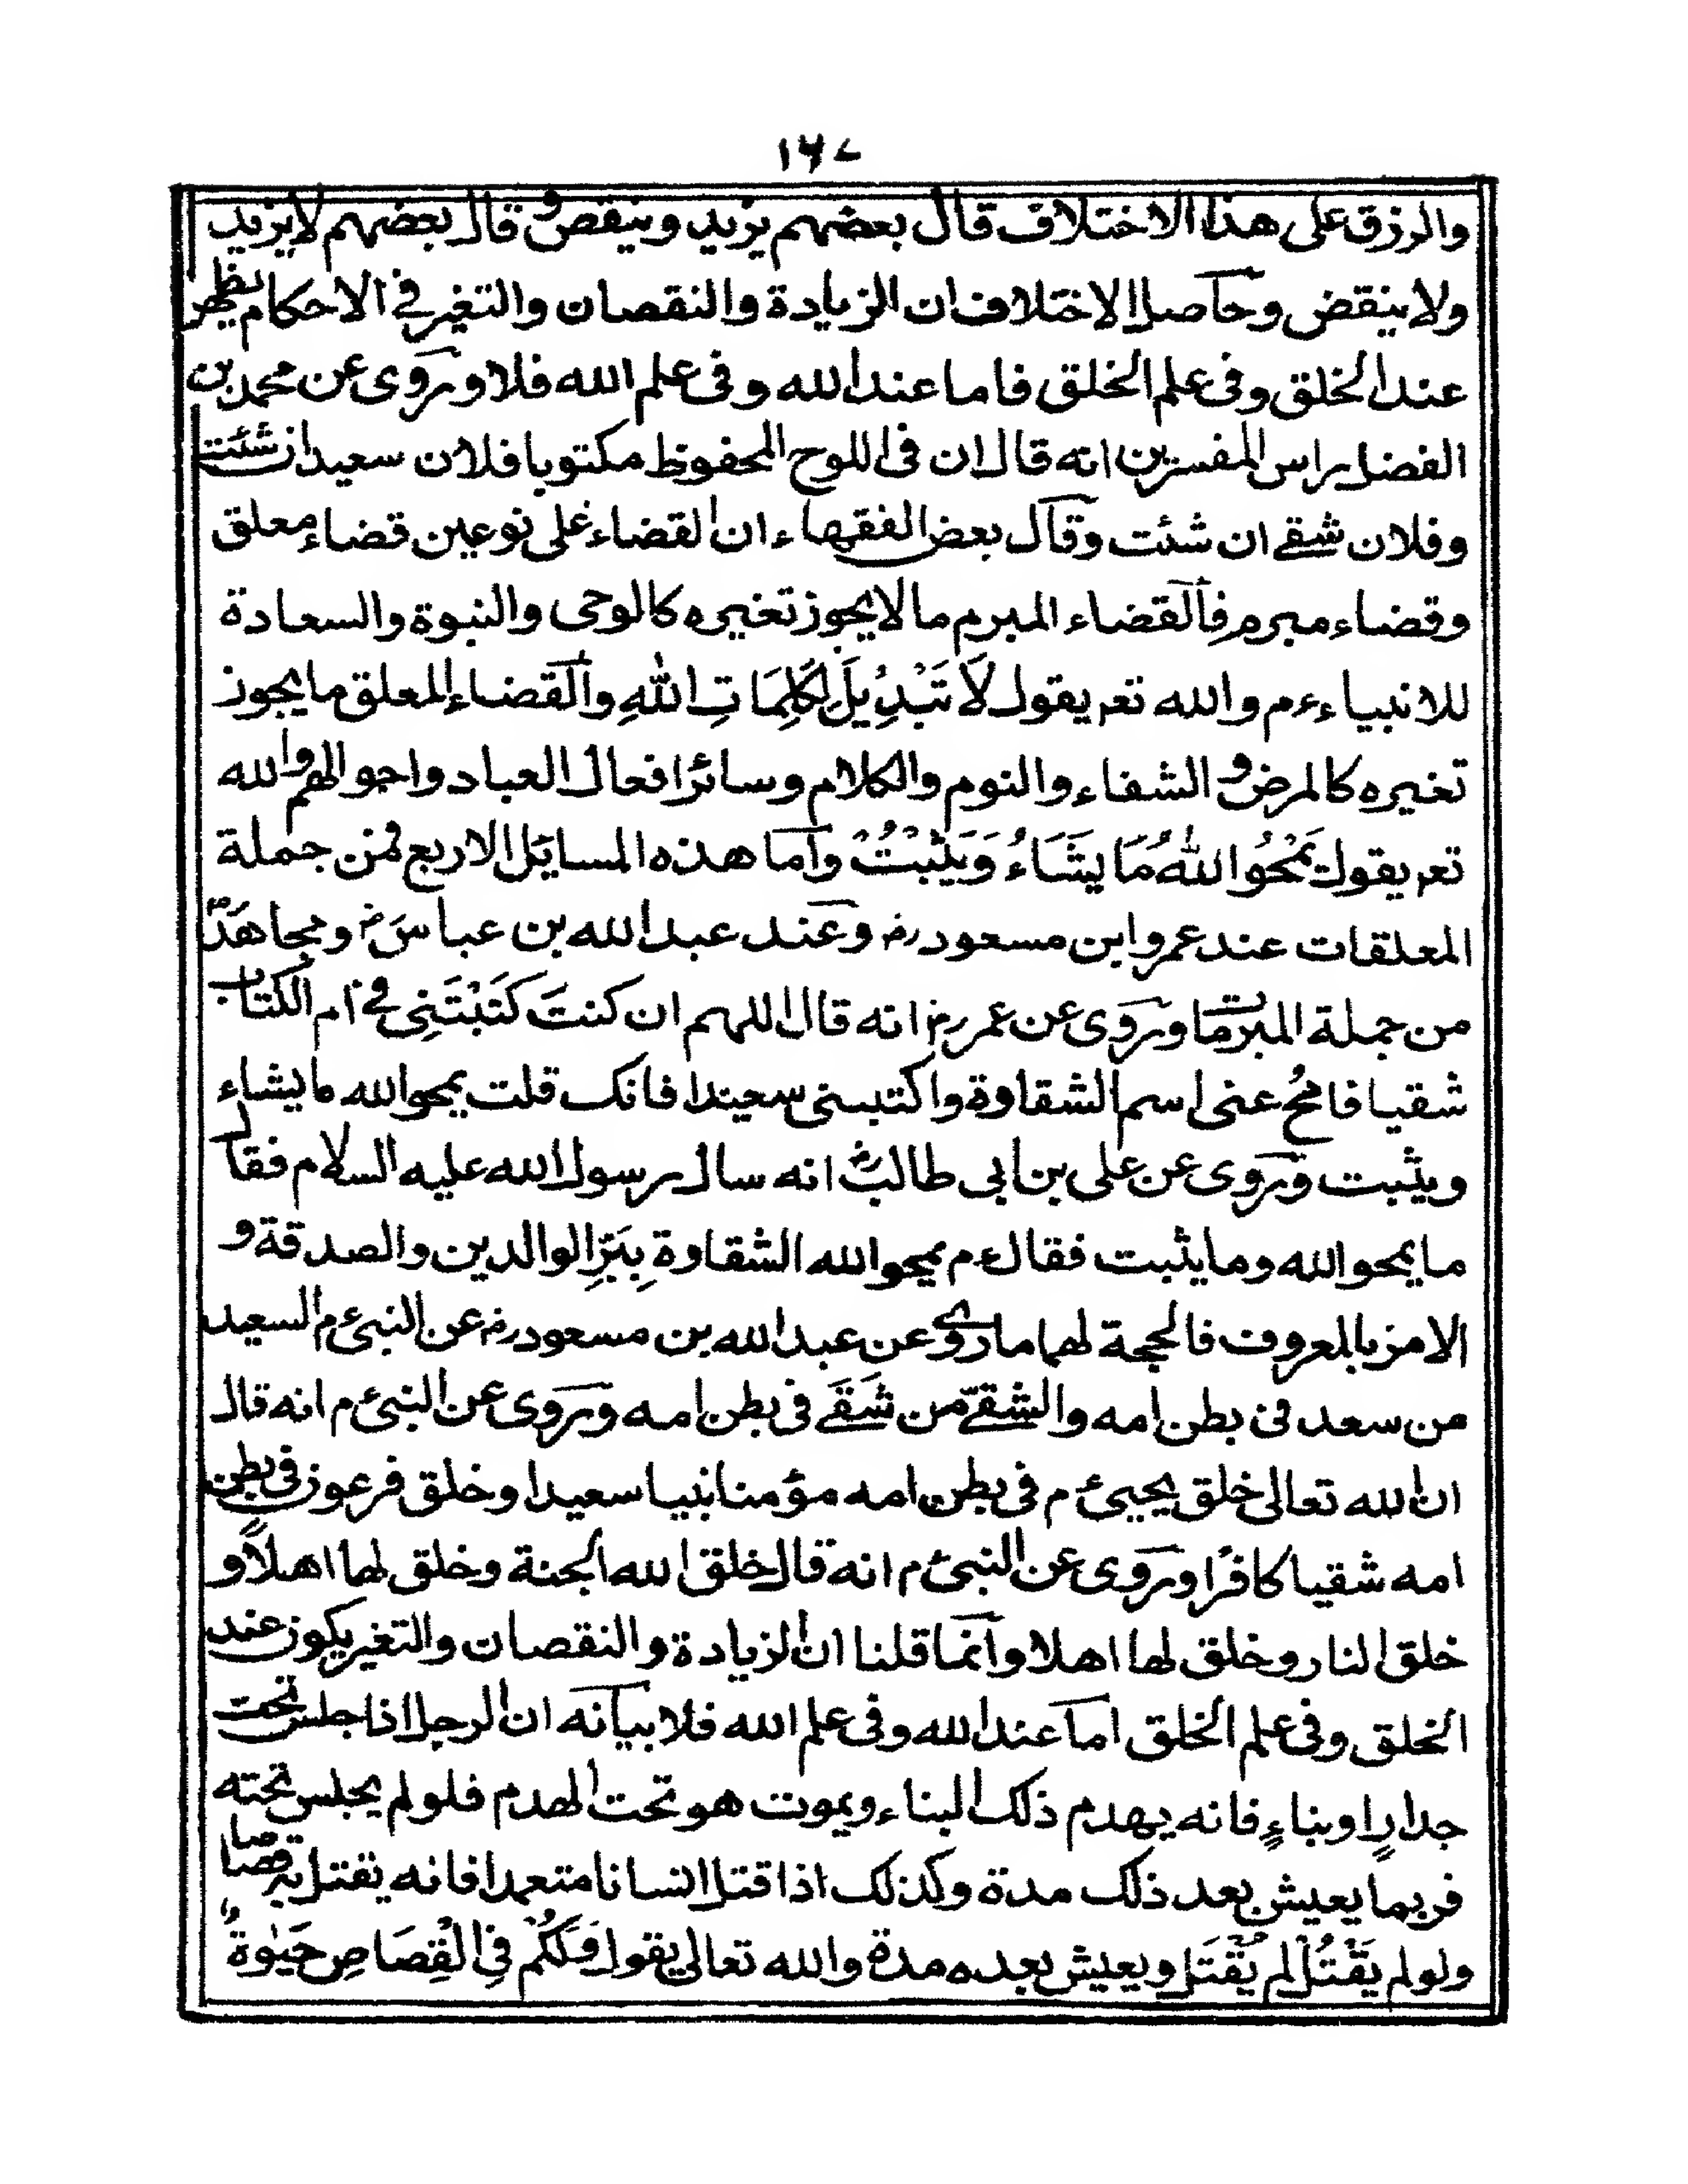 ۱۶۷
والرزق على هذا الاختلاف قال بعضهم يزيد وينقص وقال بعضهم لايزيد
ولا ينقض وحاصل الاختلاف ان الزيادة والنقصان والتغير فى الاحكام يظهر
عند الخلق وفى علم الخلق فاما عند الله وفى علم الله فلا وروى عن محمد بن
الفضل راس المفسرين انه قال ان فى اللوح المحفوظ مكتوبا فلان سعيد ان شئت
وفلان شقے ان شئت وقال بعض الفقهاء ان القضاء على نوعين قضاء معلق
وقضاء مبرم فالقضاء المبرم ما لا يجوز تغيره كالوحى والنبوة والسعادة
للانبياء ءم والله تعر يقول لَا تَبْدِيلَ لِكَلِمَاتِ اللهِ والقضاء المعلق ما يجوز
تغيره كالمرض والشفاء والنوم والكلام وسائر افعال العباد واحوالهم والله
تعر يقول يَمْحُوا اللهُ مَا يَشَاءُ وَيَثْبِتُ واما هذه المسايل الاربع فمن جملة
المعلقات عند عمر وابن مسعود رض وعند عبد الله بن عباس رض ومجاهد
من جملة المبرمات وروى عن عمر رض انه قال اللهم ان كنتَ كَتَبْتَنِى فى ام الكتاب
شقيا فامحُ عنى اسم الشقاوة واكتبنى سعيدا فانك قلت يمحو الله ما يشاء
ويثبت وروى عن على بن ابى طالب رض انه سال رسول الله عليه السلام فقال
ما يمحو الله وما يثبت فقال ءم يمحو الله الشقاوة بِبَرِّ الوالدين والصدقة و
الامر بالمعروف فالحجة لهما ما روى عن عبد الله بن مسعود رض عن النبى ءم السعيد
من سعد فى بطن امه والشقےّ من شَقَے فى بطن امه وروى عن النبى ءم انه قال
ان الله تعالى خلق يحيى ءم فى بطن امه مؤمنا نبيا سعيدا وخلق فرعون فى بطن
امه شقيا كافرا وروى عن النبى ءم انه قال خلق الله الجنة وخلق لها اهلاً و
خلق النار وخلق لها اهلا وانما قلنا ان الزيادة والنقصان والتغير يكون عند
الخلق وفى علم الخلق اما عند الله وفى علم الله فلا بيانه ان الرجل اذا جلس تحت
جدارٍ او بناءٍ فانه يهدم ذلك البناء ويموت هو تحت الهدم فلو لم يجلس تحته
فربما يعيش بعد ذلك مدة وكذلك اذا قتل انسانا متعمدا فانه يقتل به قصاصا
ولو لم يَقْتُلْ لم يُقْتَل ويعيش بعده مدة والله تعالى يقول وَلَكُمْ فِى الْقِصَاصِ حَيٰوةٌ